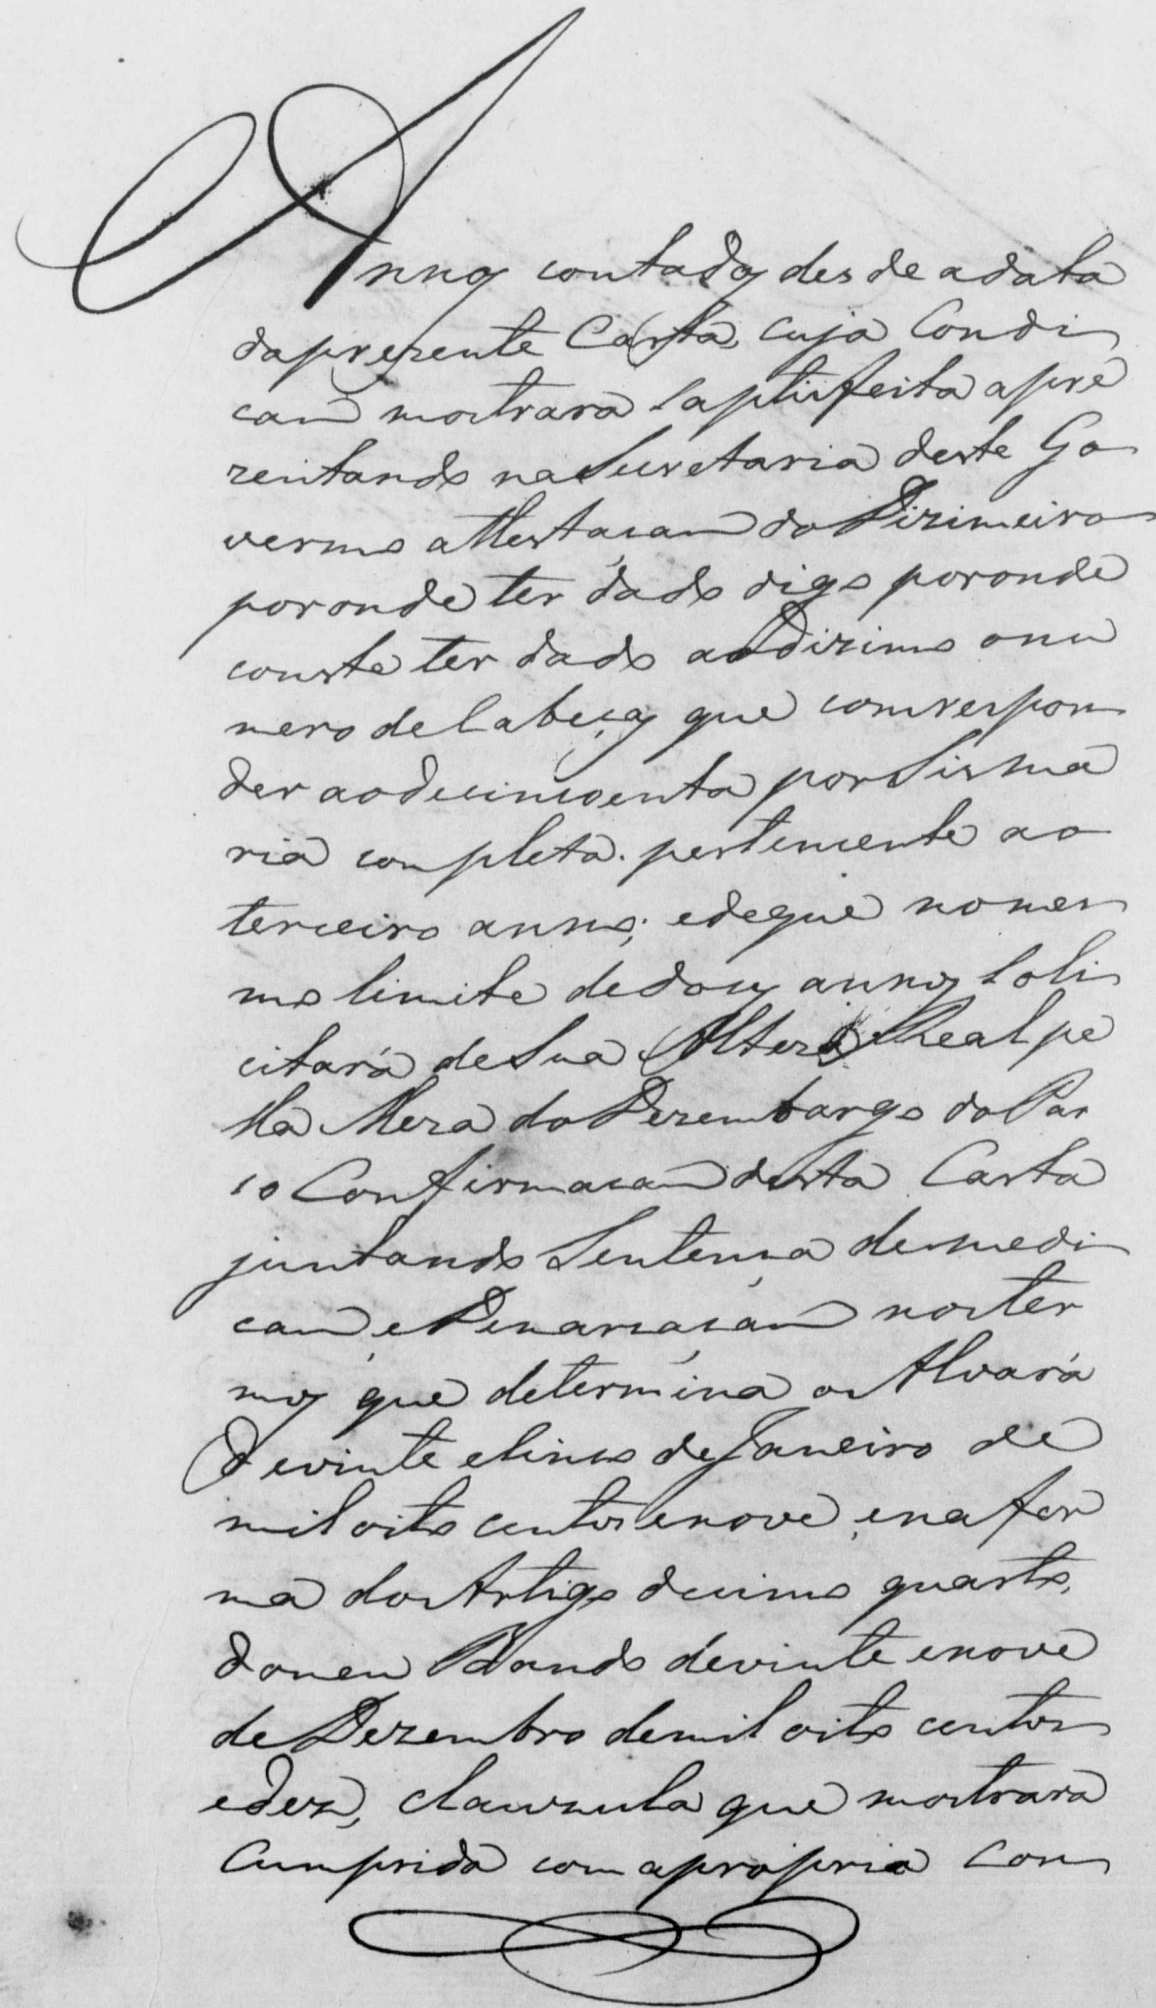 Annos contados desde a data
da prezente Carta, cuja Condi
çaõ mostrara saptisfeita apre
zentando na Secretaria deste Go
verno attestaçam do Dizimeiro
por onde ter dado digo por onde
conste ter dado ao dizimo o nu
mero de Cabeças que comrespon
der ao de cincoenta por Sisma
ria completa. pertencente ao
terceiro anno; e de que no mes
mo limite de dous annos Soli
citará de Sua Alteza Real pe
lla Meza do Dezembargo do Pa
ço Confirmaçam desta Carta
juntando Sentença de medi
çam, e Demarcaçam nos ter
mos que determina o Alvará
de vinte e Sinco de Janeiro de
mil oito centos e nove, e na for
ma do Artigo decimo quarto,
do meu Bando de vinte e nove
de Dezembro de mil oito centos
e dez, clauzula que mostrara
Cumprida com a propria Con